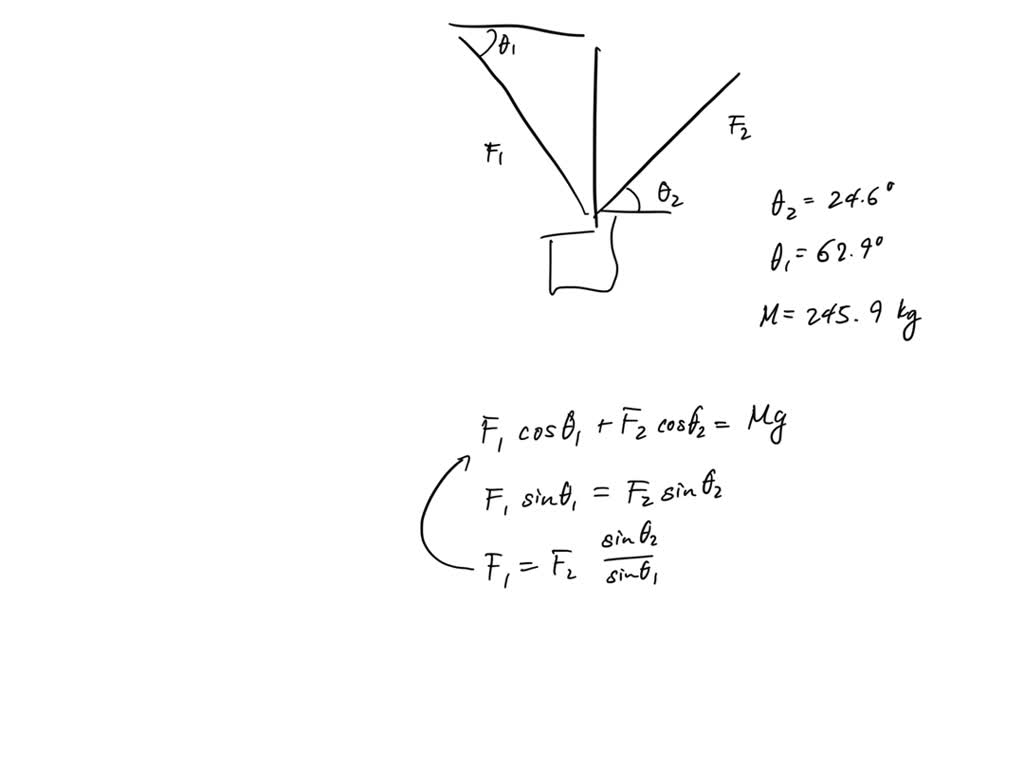 θ₁
F₁
F₂
θ₂
θ₂ = 24.6°
θ₁ = 62.9°
M = 245.9 kg
F₁ cosθ₁ + F₂ cosθ₂ = Mg
F₁ sinθ₁ = F₂ sinθ₂
F₁ = F₂ sinθ₂/sinθ₁